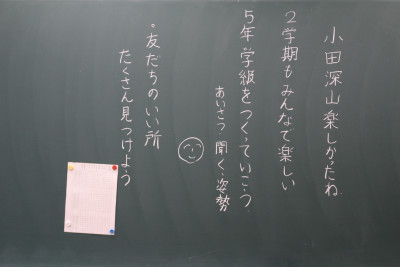 小田深山楽しかったね
2学期もみんなで楽しい
5年学級をつくっていこう。
あいさつ 聞く姿勢
・友だちのいい所
たくさん見つけよう